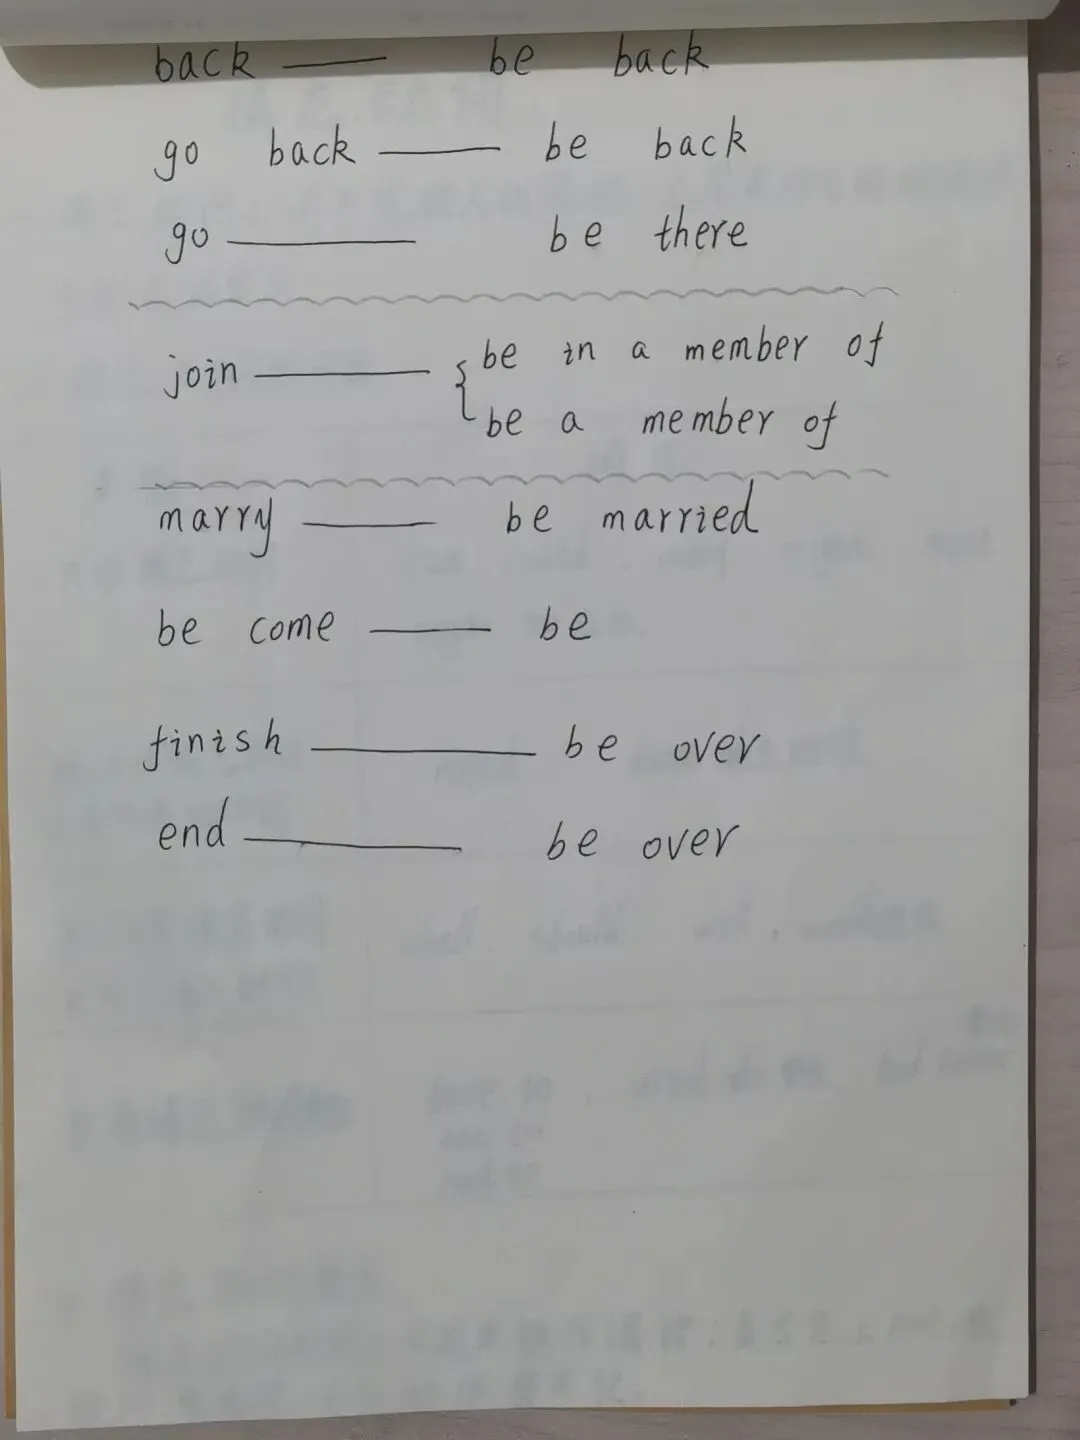 back —— be back
go back —— be back
go —— be there
join —— { be in a member of
be a member of
marry —— be married
be come —— be
finish —— be over
end —— be over